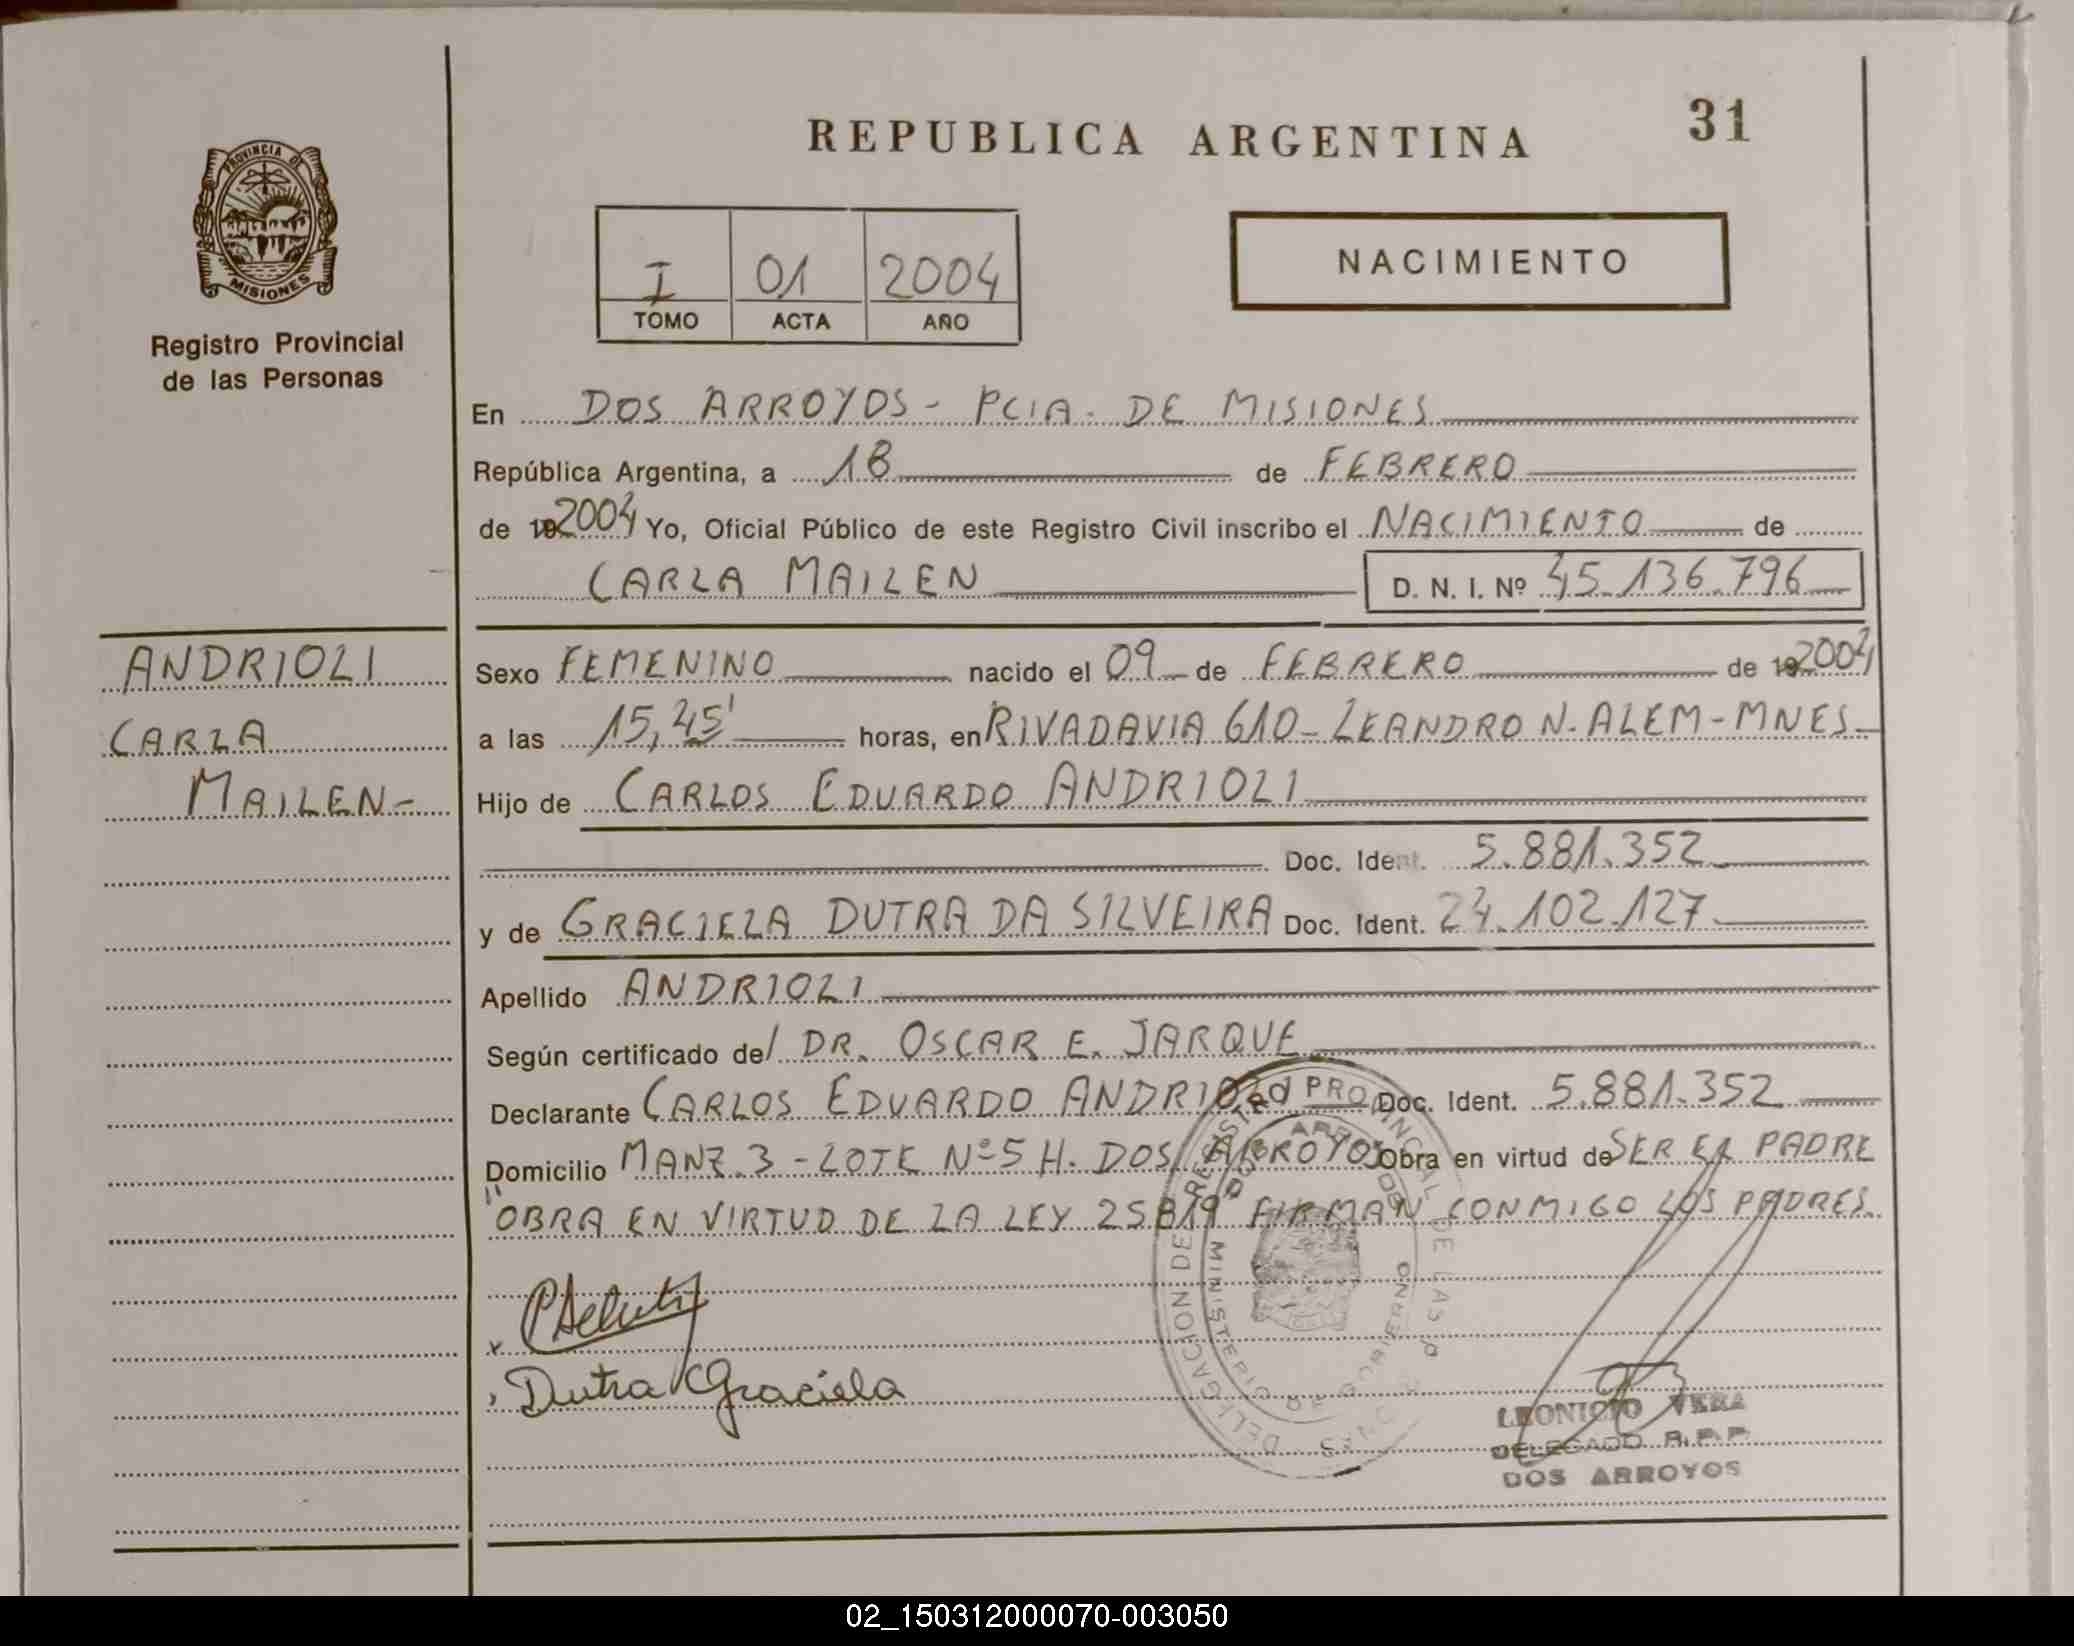 REPUBLICA ARGENTINA
31
PROVINCIA DE
MISIONES
Registro Provincial
de las Personas
I 01 2004
TOMO ACTA AÑO
NACIMIENTO
En DOS ARROYOS - PCIA. DE MISIONES
República Argentina, a 18 de FEBRERO
de 192004 Yo, Oficial Público de este Registro Civil inscribo el NACIMIENTO de
CARLA MAILEN D. N. I. Nº 45.136.796
ANDRIOLI
CARLA
MAILEN-
Sexo FEMENINO nacido el 09 de FEBRERO de 192004
a las 15,45' horas, en RIVADAVIA 610 - LEANDRO N. ALEM - MNES-
Hijo de CARLOS EDUARDO ANDRIOLI
Doc. Ident. 5.881.352
y de GRACIELA DUTRA DA SILVEIRA Doc. Ident. 24.102.127
Apellido ANDRIOLI
Según certificado de/ DR. OSCAR E. JARQUE
Declarante CARLOS EDUARDO ANDRIOLI Doc. Ident. 5.881.352
Domicilio MANZ. 3 - LOTE Nº 5 H. DOS ARROYOS Obra en virtud de SER EL PADRE
"OBRA EN VIRTUD DE LA LEY 25819" FIRMAN CONMIGO LOS PADRES.
Dutra Graciela
DELEGACION DE REGISTRO PROVINCIAL DE LAS
MINISTERIO DE GOBIERNO
DOS ARROYOS
LEONICIO VERA
DELEGADO R.P.P.
DOS ARROYOS
02_150312000070-003050